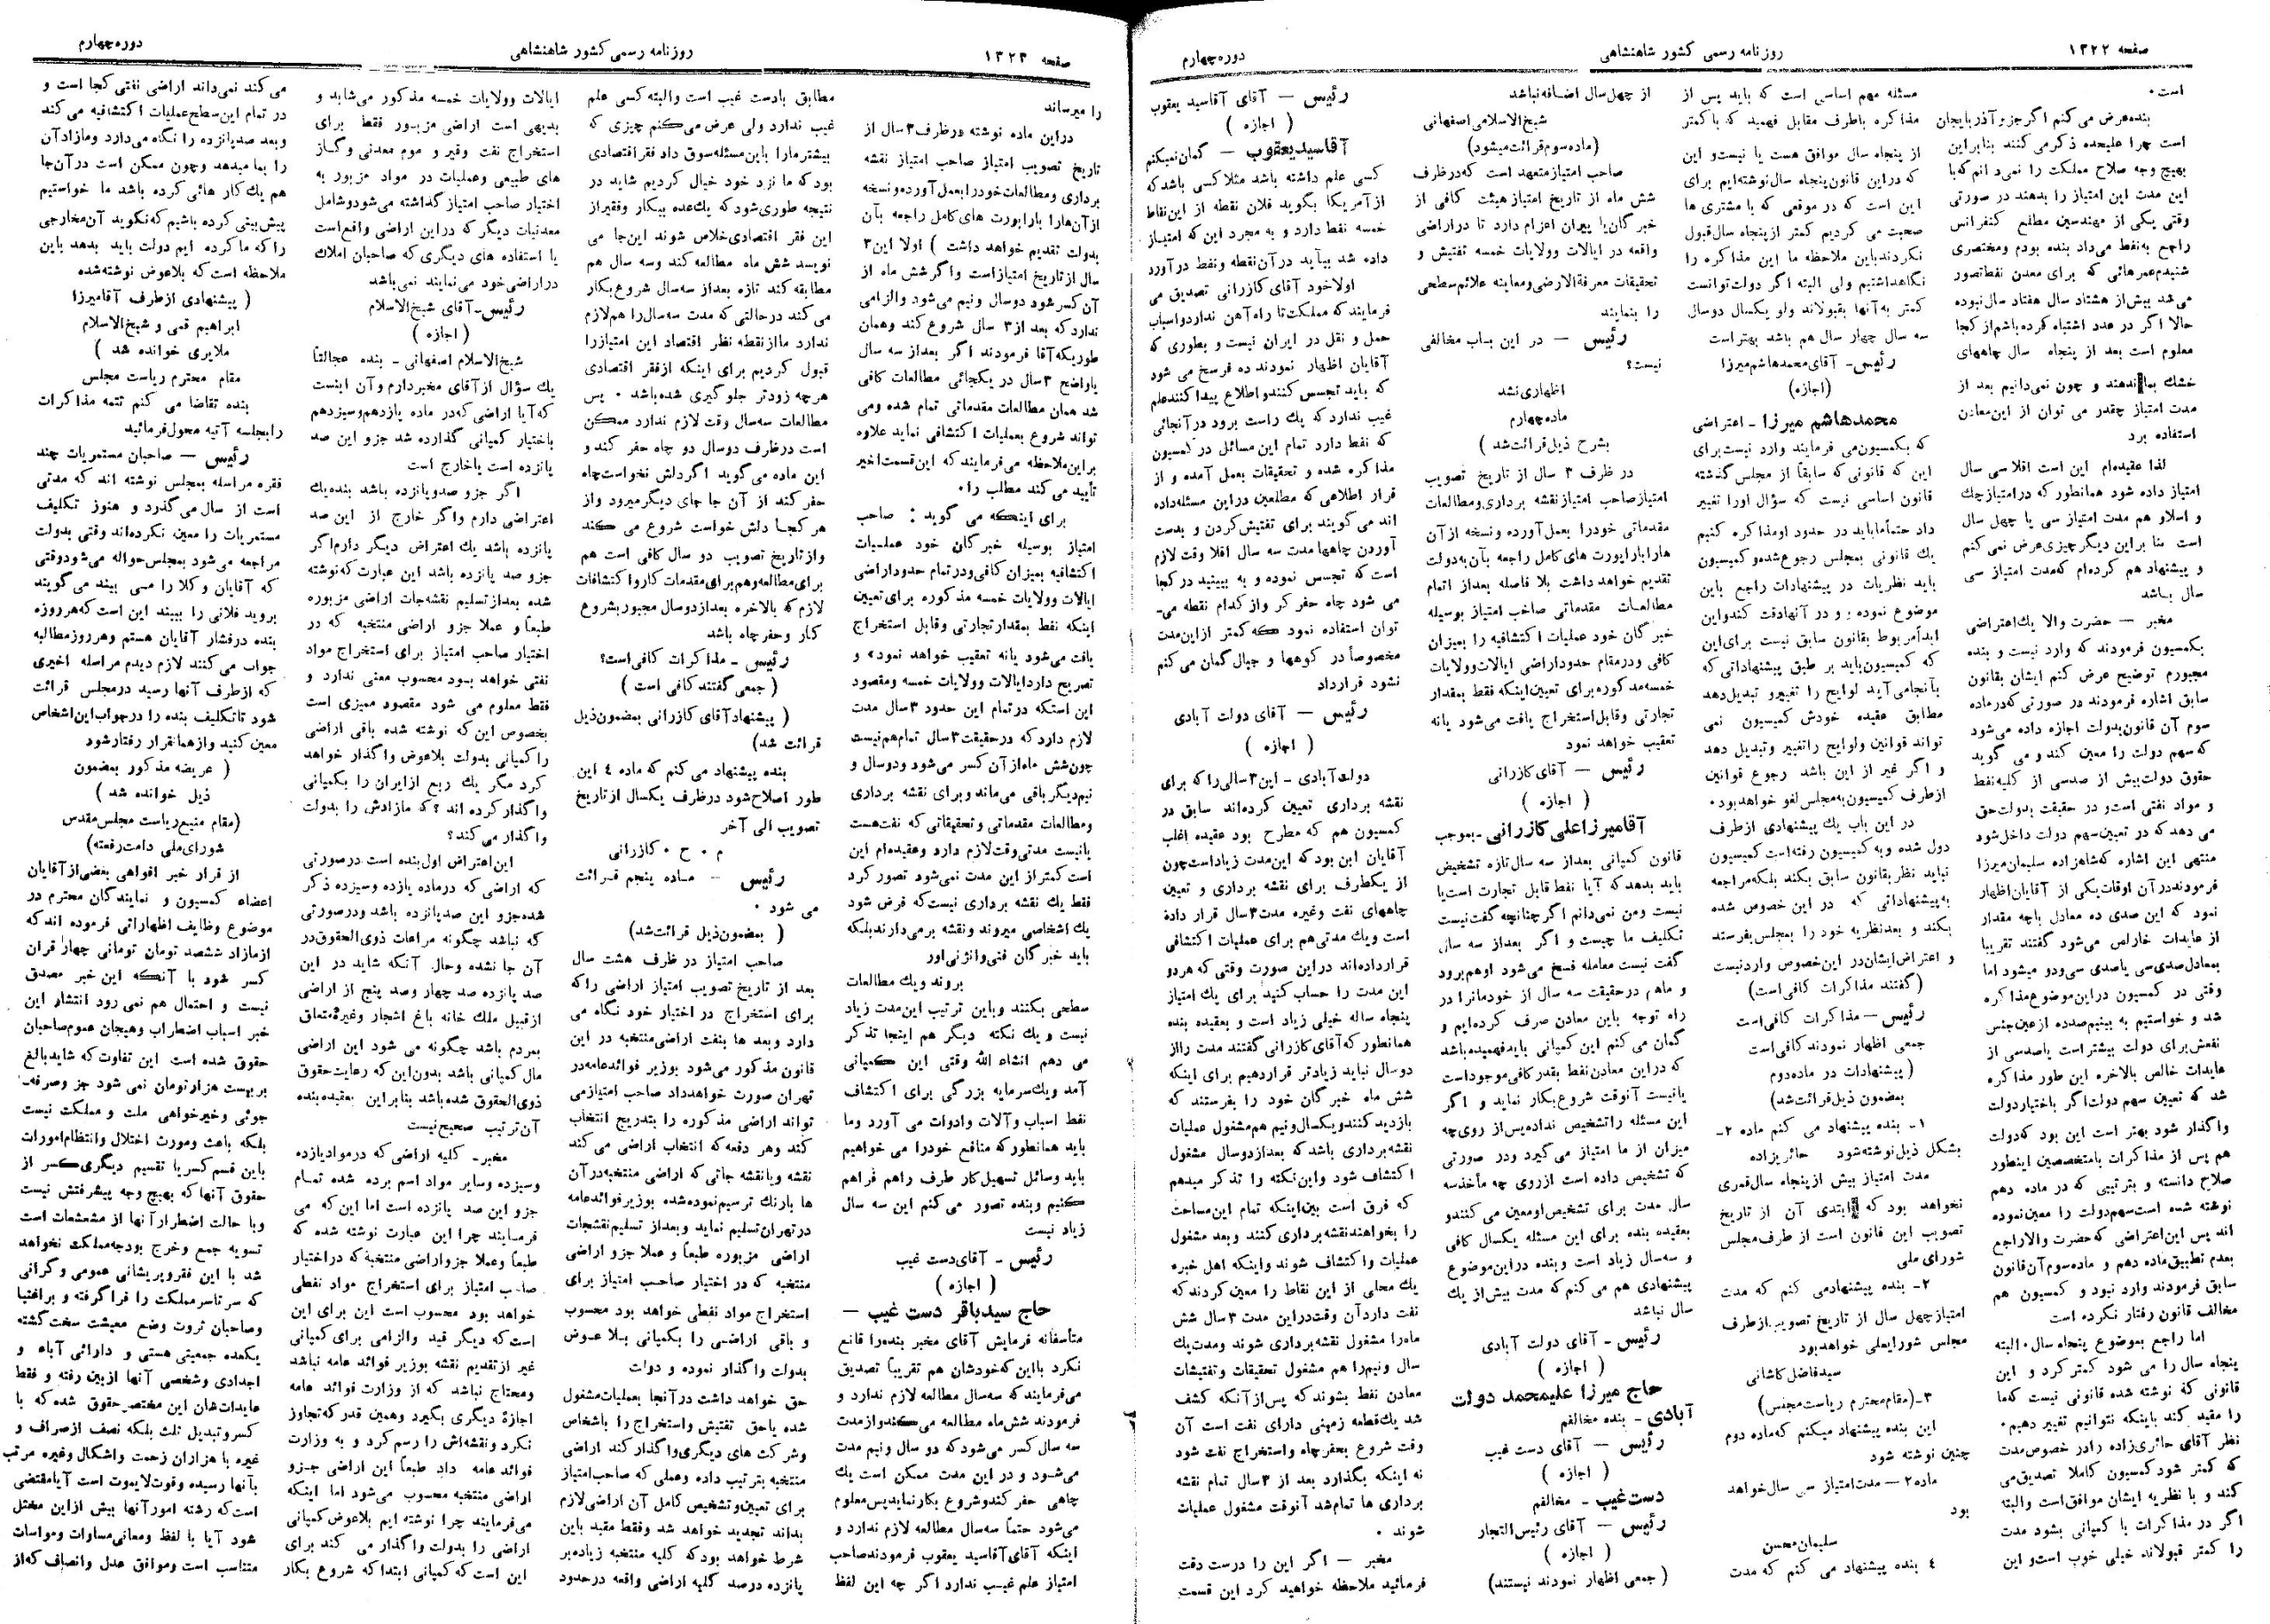 صفحه ۱۳۲۲
روزنامه رسمی کشور شاهنشاهی
دوره‌چهارم
است ۰
بنده‌عرض می‌کنم اگرجزو آذربایجان
است چرا علیحده ذکرمی‌کنند بنابراین
بهیچ وجه صلاح مملکت را نمی‌دانم که‌با
این مدت این امتیاز را بدهند در صورتی
وقتی یکی از مهندسین مطلع کنفرانس
راجع به‌نفط می‌داد بنده بودم ومختصری
شنیدم‌عمرهائی که برای معدن نفط‌تصور
می‌شد بیش‌از هشتاد سال هفتاد سال‌نبوده
حالا اگر در عدد اشتباه کرده‌باشم‌از کجا
معلوم است بعد از پنجاه سال چاههای
خشك بماندهند و چون نمی‌دانیم بعد از
مدت امتیاز چقدر می توان از این‌معادن
استفاده برد
لذا عقیده‌ام این است اقلا سی سال
امتیاز داده شود همانطور که درامتیازچك
و اسلاو هم مدت امتیاز سی یا چهل سال
است بنا براین دیگرچیزی‌عرض نمی کنم
و پیشنهاد هم کرده‌ام که‌مدت امتیاز سی
سال باشد
مخبر — حضرت والا یك‌اعتراضی
بکمسیون فرمودند که وارد نیست و بنده
مجبورم توضیح عرض کنم ایشان بقانون
سابق اشاره فرمودند در صورتی که‌درماده
سوم آن قانون‌بدولت اجازه داده می‌شود
که سهم دولت را معین کند و می گوید
حقوق دولت‌بیش از صدسی از کلیه‌نفط
و مواد نفتی است‌و در حقیقت بدولت‌حق
می دهد که در تعیین‌سهم دولت داخل‌شود
منتهی این اشاره که‌شاهزاده سلیمان‌میرزا
فرمودنددرآن اوقات‌یکی از آقایان‌اظهار
نمود که این صدی ده معادل باچه مقدار
از عایدات خارلص می‌شود گفتند تقریبا
بمعادل‌صدی‌سی یاصدی سی‌ودو میشود اما
وقتی در کمسیون دراین‌موضوع‌مذاکره
شد و خواستیم به بینیم‌صدده ازعین‌جنس
نفعش‌برای دولت بیشتراست یاصدسی از
عایدات خالص بالاخره این طور مذاکره
شد که تعیین سهم دولت‌اگر باختیاردولت
واگذار شود بهتر است این بود که‌دولت
هم پس از مذاکرات بامتخصصین اینطور
صلاح دانسته و بترتیبی که در ماده دهم
نوشته شده است‌سهم‌دولت را معین‌نموده
اند پس این‌اعتراضی که‌حضرت والاراجع
بعدم تطبیق‌ماده دهم و ماده‌سوم آن‌قانون
سابق فرمودند وارد نبود و کمسیون هم
مخالف قانون رفتار نکرده است
اما راجع بموضوع پنجاه سال۰ البته
پنجاه سال را می شود کمتر کرد و این
قانونی که نوشته شده قانونی نیست که‌ما
را مقید کند باینکه نتوانیم تغییر دهیم۰
نظر آقای حائری‌زاده رادر خصوص‌مدت
که کمتر شود کمسیون کاملا تصدیق‌می
کند و با نظریه ایشان موافق‌است والبته
اگر در مذاکرات با کمپانی بشود مدت
را کمتر قبولاند خیلی خوب است‌و این
مسئله مهم اساسی است که باید پس از
مذاکره باطرف مقابل فهمید که با کمتر
از پنجاه سال موافق هست یا نیست‌و این
که دراین قانون‌پنجاه سال‌نوشته‌ایم برای
این است که در موقعی که با مشتری ها
صحبت می کردیم کمتر ازپنجاه سال‌قبول
نکردندباین ملاحظه ما این مذاکره را
نگاهداشتیم ولی البته اگر دولت‌توانست
کمتر به‌آنها بقبولاند ولو یکسال دوسال
سه سال چهار سال هم باشد بهتر است
رئیس- آقای‌محمدهاشم‌میرزا
(اجازه)
محمدهاشم میرزا - اعتراضی
که بکمسیون‌می فرمایند وارد نیست‌برای
این که قانونی‌که سابقاً از مجلس گذشته
قانون اساسی نیست که سؤال اورا تغییر
داد حتماًماباید در حدود اومذاکره کنیم
یك قانونی بمجلس رجوع‌شده‌و کمیسیون
باید نظریات در پیشنهادات راجع باین
موضوع نموده و و در آنهادقت کندواین
ابداً‌مربوط بقانون سابق نیست برای‌این
که کمیسیون‌باید بر طبق پیشنهاداتی که
بآنجامی‌آید لوایح را تغییرو تبدیل‌دهد
مطابق عقیده خودش کمیسیون نمی
تواند قوانین ولوایح راتغییر وتبدیل دهد
و اگر غیر از این باشد رجوع قوانین
ازطرف کمیسیون‌به‌مجلس‌لغو خواهدبود۰
در این باب یك پیشنهادی ازطرف
دول شده وبه کمیسیون رفته‌است کمیسیون
نباید نظر بقانون سابق بکند بلکه‌مراجعه
به‌پیشنهاداتی که در این خصوص شده
بکند و بعدنظریه خود را بمجلس‌بفرستد
و اعتراض‌ایشان‌در این‌خصوص واردنیست
(گفتند مذاکرات کافی‌است)
رئیس — مذاکرات کافی‌است
جمعی اظهار نمودند کافی‌است
(پیشنهادات در ماده‌دوم
بمضمون ذیل‌قرائت‌شد)
۱- بنده پیشنهاد می کنم ماده ۲-
بشکل ذیل‌نوشته‌شود حائریزاده
مدت امتیاز بیش ازپنجاه سال‌قمری
نخواهد بود که ابتدی آن از تاریخ
تصویب این قانون است از طرف‌مجلس
شورای ملی
۲- بنده پیشنهادمی کنم که مدت
امتیازچهل سال از تاریخ تصویب.ازطرف
مجلس شورایملی خواهدبود
سیدفاضل کاشانی
۳-(مقام‌محترم ریاست‌مجلس)
این بنده پیشنهاد میکنم که‌ماده دوم
چنین نوشته شود
ماده۲ — مدت‌امتیاز سی سال‌خواهد
بود
سلیمان‌محسن
٤ بنده پیشنهاد می کنم که مدت
از چهل‌سال اضافه‌نباشد
شیخ‌الاسلامی‌اصفهانی
(ماده‌سوم‌قرائت‌میشود)
صاحب امتیازمتعهد است که‌درظرف
شش ماه از تاریخ امتیازهیئت کافی از
خبرگان‌با پیران اعزام دارد تا دراراضی
واقعه در ایالات وولایات خمسه تفتیش و
تحقیقات معرفة‌الارضی‌ومعاینه علائم‌سطحی
را بنمایند
رئیس — در این باب مخالفی
نیست؟
اظهاری‌نشد
ماده‌چهارم
بشرح ذیل‌قرائت‌شد )
در ظرف ۳ سال از تاریخ تصویب
امتیازصاحب امتیازنقشه برداری‌ومطالعات
مقدماتی خودرا بعمل‌آورده ونسخه از آن
هارابارابورت های‌کامل راجعه بآن‌به‌دولت
تقدیم خواهد داشت بلا فاصله بعداز اتمام
مطالعات مقدماتی صاخب امتیاز بوسیله
خبرگان خود عملیات اکتشافیه را بمیزان
کافی ودرمقام حدوداراضی ایالات‌وولایات
خمسه‌مدکوره‌برای تعیین‌اینکه فقط بمقدار
تجارتی وقابل‌استخراج یافت می‌شود یانه
تعقیب خواهد نمود
رئیس — آقای‌کازرانی
( اجازه )
آقامیرزاعلی‌کازرانی -بموجب
قانون کمپانی بعداز سه سال‌تازه تشخیص
باید بدهدکه آیا نفط‌قابل تجارت است‌یا
نیست ومن نمی‌دانم اگرچنانچه گفت‌نیست
تکلیف ما چیست و اگر بعداز سه سال
گفت نیست معامله فسخ می‌شود اوهم‌برود
و ماهم درحقیقت سه سال از خودمانرا در
راه توجه باین معادن صرف کرده‌ایم و
گمان می کنم این کمپانی بایدفهمیده‌باشد
که دراین معادن‌نفط بقدرکافی‌موجوداست
یانیست آنوقت شروع‌بکار نماید و اگر
این مسئله راتشخیص نداده‌پس‌از روی‌چه
میزان از ما امتیاز می‌گیرد ودر صورتی
که تشخیص داده است ازروی چه مأخذسه
سال مدت برای تشخیص‌اومعین می کنندو
بعقیده بنده برای این مسئله یکسال کافی
و سه‌سال زیاد است وبنده دراین‌موضوع
پیشنهادی هم می‌کنم‌که مدت بیش‌از یك
سال نباشد
رئیس - آقای دولت آبادی
( اجازه )
حاج میرزا علیمحمد دولت
آبادی - بنده مخالفم
رئیس — آقای دست غیب
( اجازه )
دست‌غیب - مخالفم
رئیس — آقای رئیس‌التجار
( اجازه )
( جمعی اظهار نمودند نیستند)
رئیس — آقای آقاسید یعقوب
( اجازه )
آقاسیدیعقوب — گمان‌نمیکنم
کسی علم داشته باشد مثلاکسی باشدکه
ازآمریکا بگوید فلان نقطه از این‌نقاط
خمسه نفط دارد و به مجرد این که امتیاز
داده شد بیآید درآن‌نقطه ونفط درآورد
اولاخود آقای‌کازرانی تصدیق می
فرمایند که مملکت‌تا راه‌آهن نداردواسباب
حمل و نقل در ایران نیست و بطوری که
آقایان اظهار نمودند ده فرسخ می شود
که باید تجسس کنندواطلاع پیداکنندعلم
غیب نداردکه یك راست برود درآنجائی
که نفط دارد تمام این مسائل در کمسیون
مذاکره شده و تحقیقات بعمل آمده و از
قرار اطلاعی که مطلعین دراین مسئله‌داده
اند می گویند برای تفتیش‌کردن و بدست
آوردن چاهها مدت سه سال اقلا وقت لازم
است که تجسس نموده و به بینند در کجا
می شود چاه حفر کر وازکدام نقطه می-
توان استفاده نمود که کمتر ازاین‌مدت
مخصوصاً در کوهها و جبال گمان می کنم
نشود قرارداد
رئیس — آقای دولت آبادی
( اجازه )
دولت‌آبادی - این۳سالی‌راکه برای
نقشه برداری تعیین کرده‌اند سابق در
کمسیون هم که مطرح بود عقیده اغلب
آقایان این بودکه این‌مدت زیاداست‌چون
از یکطرف برای نقشه برداری و تعیین
چاههای نفت وغیره مدت۳سال قرار داده
است ویك مدتی‌هم برای عملیات اکتشافی
قرارداده‌اند دراین صورت وقتی که هردو
این مدت را حساب کنید برای یك امتیاز
پنجاه ساله خیلی زیاد است و بعقیده بنده
همانطور که آقای‌کازرانی گفتند مدت رااز
دوسال نباید زیادتر قراردهیم برای اینکه
شش ماه خبرگان خود را بفرستند که
بازدیدکنندویکسال‌ونیم هم‌مشغول عملیات
نقشه‌برداری باشدکه بعدازدوسال مشغول
اکتشاف شود واین‌نکته را تذکر میدهم
که فرق است بین‌اینکه تمام این‌مساحت
را بخواهندنقشه‌برداری کنند وبعد مشغول
عملیات واکتشاف شوند واینکه اهل خبره
یك محلی از این نقاط را معین کردندکه
نفت داردآن وقت‌دراین مدت ۳سال شش
ماه‌را مشغول نقشه‌برداری شوند ومدت‌یك
سال ونیم‌را هم مشغول تحقیقات وتفتیشات
معادن نفط بشوند که پس‌ازآنکه کشف
شد یك‌قطعه زمینی دارای نفت است آن
وقت شروع بحفرچاه واستخراج نفت شود
نه اینکه بگذارد بعد از ۳سال تمام نقشه
برداری ها تمام‌شد آنوقت مشغول عملیات
شوند ۰
مخبر — اگر این را درست دقت
فرمائید ملاحظه خواهید کرد این قسمت
صفحه ۱۳۲۳
روزنامه رسمی کشور شاهنشاهی
دوره‌چهارم
را میرساند
دراین ماده نوشته درظرف۳سال از
تاریخ تصویب امتیاز صاحب امتیاز نقشه
برداری ومطالعات‌خودرابعمل‌آورده‌ونسخه
ازآن‌هارا بارابورت های‌کامل راجعه بآن
بدولت تقدیم خواهد داشت ) اولا این۳
سال ازتاریخ امتیازاست واگرشش ماه از
آن کسرشود دوسال ونیم می‌شود والزامی
نداردکه بعد از۳ سال شروع کند وهمان
طوریکه‌آقا فرمودند اگر بعداز سه سال
یاواضح ۳سال در یکجائی مطالعات کافی
شد همان مطالعات مقدماتی تمام شده ومی
تواند شروع بعملیات اکتشافی نماید علاوه
براین‌ملاحظه می‌فرمایندکه این‌قسمت‌اخیر
تأیید می‌کند مطلب را۰
برای اینکه می گوید : صاحب
امتیاز بوسیله خبرگان خود عملیات
اکتشافیه بمیزان کافی‌ودرتمام حدوداراضی
ایالات وولایات خمسه مذکوره برای‌تعیین
اینکه نفط بمقدارتجارتی وقابل استخراج
یافت می‌شود یانه تعقیب خواهد نمود» و
تصریح داردایالات وولایات خمسه ومقصود
این استکه درتمام این حدود ۳سال مدت
لازم داردکه درحقیقت۳سال تمام‌هم‌نیست
چون‌شش ماه‌ازآن کسر می‌شود ودوسال و
نیم‌دیگرباقی می‌ماند وبرای نقشه برداری
ومطالعات مقدماتی وتحقیقاتی که نفت‌هست
یانیست مدتی‌وقت‌لازم دارد وعقیده‌ام این
است کمتراز این مدت نمی‌شود تصور کرد
فقط یك نقشه برداری نیست‌که فرض شود
یك اشخاصی میروند ونقشه برمی‌دارندبلکه
باید خبرگان فنی‌وانژنی‌اور
بروند ویك مطالعات
سطحی بکنند وباین ترتیب این‌مدت زیاد
نیست ویك نکته دیگر هم اینجا تذکر
می دهم انشاء الله وقتی این کمپانی
آمد ویك‌سرمایه بزرگی برای اکتشاف
نفط اسباب وآلات وادوات می آورد وما
باید همانطورکه منافع خودرا می خواهیم
باید وسائل تسهیل‌کار طرف راهم فراهم
کنیم وبنده تصور می‌کنم این سه سال
زیاد نیست
رئیس - آقای‌دست غیب
( اجازه )
حاج سیدباقر دست غیب —
متأسفانه فرمایش آقای مخبر بنده‌را قانع
نکرد بااین‌که‌خودشان هم تقریباً تصدیق
می‌فرمایندکه سه‌سال مطالعه لازم ندارد و
فرمودند شش‌ماه مطالعه می‌کندوازمدت
سه سال کسر می‌شودکه دو سال ونیم مدت
می‌شود و در این مدت ممکن است یك
چاهی حفرکندوشروع بکارنمایدپس‌معلوم
می‌شود حتماً سه‌سال مطالعه لازم ندارد و
اینکه آقای‌آقاسید یعقوب فرمودندصاحب
امتیاز علم غیب ندارد اگر چه این لفظ
مطابق بادست غیب است والبته‌کسی علم
غیب ندارد ولی عرض می‌کنم چیزی که
بیشترمارا باین‌مسئله‌سوق داد فقراقتصادی
بودکه ما نزد خود خیال کردیم شاید در
نتیجه طوری‌شودکه یك‌عده بیکار وفقیراز
این فقر اقتصادی‌خلاص شوند این‌جا می
نویسد شش ماه مطالعه کند وسه سال هم
مطابقه کند تازه بعداز سه‌سال شروع‌بکار
می‌کند درحالتی که مدت سه‌سال‌را هم‌لازم
ندارد ماازنقطه نظر اقتصاد این امتیازرا
قبول کردیم برای اینکه ازفقر اقتصادی
هرچه زودتر جلوگیری شده‌باشد ۰ پس
مطالعات سه‌سال وقت لازم ندارد ممکن
است درظرف دوسال دو چاه حفر کند و
این ماده می‌گوید اگردلش نخواست‌چاه
حفرکند از آن جا جای دیگرمیرود واز
هرکجا دلش خواست شروع می کند
وازتاریخ تصویب دو سال کافی است هم
برای‌مطالعه‌وهم‌برای‌مقدمات‌کارواکتشافات
لازم که بالاخره بعدازدوسال مجبوربشروع
کار وحفرچاه باشد
رئیس - مذاکرات کافی‌است؟
( جمعی گفتندکافی است )
( پیشنهادآقای کازرانی بمضمون‌ذیل
قرائت شد)
بنده پیشنهاد می‌کنم که ماده ٤ این
طور اصلاح‌شود درظرف یکسال ازتاریخ
تصویب الی آخر
م ۰ ح ۰ کازرانی
رئیس — ماده پنجم قرائت
می شود ۰
( بمضمون‌ذیل قرائت‌شد)
صاحب امتیاز در ظرف هشت سال
بعد از تاریخ تصویب امتیاز اراضی راکه
برای استخراج در اختیار خود نگاه می
دارد وبعد ها بنفت اراضی‌منتخبه در این
قانون مذکور می‌شود بوزیر فوائدعامه‌در
تهران صورت خواهدداد صاحب امتیازمی
تواند اراضی مذکوره را بتدریج انتخاب
کند وهر دفعه‌که انتخاب اراضی می کند
نقشه ویانقشه جاتی که اراضی منتخبه‌درآن
ها بارنك ترسیم‌نموده‌شده بوزیرفوائدعامه
درتهران‌تسلیم نماید وبعداز تسلیم‌نقشجات
اراضی مزبوره طبعاً و عملا جزو اراضی
منتخبه که در اختیار صاحب امتیاز برای
استخراج مواد نفطی خواهد بود محسوب
و باقی اراضی را بکمپانی بلا عوض
بدولت واگذار نموده و دولت
حق خواهد داشت درآنجا بعملیات‌مشغول
شده یاحق تفتیش واستخراج را باشخاص
وشرکت های دیگری‌واگذارکند اراضی
منتخبه بترتیب داده وعملی که صاحب‌امتیاز
برای تعیین‌وتشخیص کامل آن اراضی‌لازم
بداند تجدید خواهد شد وفقط مقید باین
شرط خواهد بودکه کلیه منتخبه زیاده‌بر
پانزده درصد کلیه اراضی واقعه درحدود
ایالات وولایات خمسه مذکور می‌شاید و
بدیهی است اراضی مزبور فقط برای
استخراج نفت وقیر و موم معدنی وگاز
های طبیعی وعملیات در مواد مزبور به
اختیار صاحب امتیاز گذاشته می‌شودوشامل
معدنیات دیگر که دراین اراضی واقع‌است
یا استفاده های دیگری‌که صاحبان املاك
دراراضی‌خود می‌نمایند نمی‌باشد
رئیس-آقای شیخ‌الاسلام
( اجازه )
شیخ‌الاسلام اصفهانی - بنده عجالتاً
یك سؤال ازآقای مخبردارم وآن اینست
که‌آیا اراضی‌که‌در ماده یازدهم‌وسیزدهم
باختیار کمپانی گذارده شد جزو این صد
پانزده است یاخارج است
اگر جزو صدوپانزده باشد بنده‌یك
اعتراضی دارم واگر خارج از این صد
پانزده باشد یك اعتراض دیگر دارم‌اگر
جزو صد پانزده باشد این عبارت که‌نوشته
شده بعدازتسلیم نقشه‌جات اراضی مزبوره
طبعاً و عملا جزو اراضی منتخبه که در
اختیار صاحب امتیاز برای استخراج مواد
نفتی خواهد بود محسوب معنی ندارد و
فقط معلوم می شود مقصود ممیزی است
بخصوص این‌که نوشته شده باقی اراضی
راکمپانی بدولت بلاعوض واگذار خواهد
کرد مگر یك ربع ازایران را بکمپانی
واگذارکرده اند ؟که مازادش را بدولت
واگذار می‌کند؟
این‌اعتراض اول‌بنده است درصورتی
که اراضی که درماده یازده وسیزده ذکر
شده‌جزو این صدپانزده باشد ودرصورتی
که نباشد چگونه مراعات ذوی‌الحقوق‌در
آن جا نشده وحال آنکه شاید در این
صد پانزده صد چهار وصد پنج از اراضی
ازقبیل ملك خانه باغ اشجار وغیره‌متعلق
بمردم باشد چگونه می شود این اراضی
مال کمپانی باشد بدون‌این‌که رعایت‌حقوق
ذوی‌الحقوق شده‌باشد بنابراین بعقیده‌بنده
آن‌ترتیب صحیح‌نیست
مخبر- کلیه اراضی که درموادیازده
وسیزده وسایر مواد اسم برده شده تمام
جزو این صد یانزده است اما این‌که می
فرمایند چرا این عبارت نوشته شده که
طبعاً وعملا جزواراضی منتخبه‌که دراختیار
صاحب امتیاز برای استخراج مواد نفطی
خواهد بود محسوب است این برای این
است‌که دیگر قید والزامی برای‌کمپانی
غیر ازتقدیم نقشه بوزیر فوائد عامه نباشد
ومحتاج نباشد که از وزارت فوائد عامه
اجازۀ دیگری بگیرد وهمین قدرکه‌تجاوز
نکرد ونقشه‌اش را رسم‌کرد و به وزارت
فوائدعامه داد طبعاً این اراضی جزو
اراضی منتخبه محسوب می‌شود اما اینکه
می‌فرمایند چرا نوشته ایم بلاعوض‌کمپانی
اراضی را بدولت واگذار می کند برای
این است‌که‌کمپانی ابتداکه شروع بکار
می‌کند نمی‌داند اراضی نفتی کجا است و
در تمام این‌سطح‌عملیات اکتشافیه می‌کند
وبعد صدپانزده را نگاه می‌دارد ومازادآن
را بما میدهد وچون ممکن است درآن‌جا
هم یك‌کار هائی کرده باشد ما خواستیم
پیش‌بینی کرده باشیم که‌نگوید آن‌مخارجی
راکه ماکرده ایم دولت باید بدهد باین
ملاحظه است که بلاعوض نوشته‌شده
( پیشنهادی ازطرف آقامیرزا
ابراهیم قمی و شیخ‌الاسلام
ملایری خوانده شد )
مقام محترم ریاست مجلس
بنده تقاضا می کنم تتمه مذاکرات
رابجلسه آتیه محول‌فرمائید
رئیس — صاحبان مستمریات چند
فقره مراسله بمجلس نوشته اند که مدتی
است از سال می‌گذرد و هنوز تکلیف
مستمریات را معین نکرده‌اند وقتی بدولت
مراجعه می‌شود بمجلس‌حواله می‌شودوقتی
که آقایان وکلا را مسی بیند می‌گویند
بروید فلانی را ببیند این است‌که‌هرروزه
بنده درفشار آقایان هستم وهرروزمطالبه
جواب می‌کنند لازم دیدم مراسله اخیری
که ازطرف آنها رسید درمجلس قرائت
شود تاتکلیف بنده را درجواب‌این‌اشخاص
معین‌کنید وازهمانقرار رفتارشود
( عریضه مذکور بمضمون
ذیل خوانده شد )
(مقام منیع‌ریاست مجلس‌مقدس
شورای‌ملی دامت‌رفعته)
از قرار خبر افواهی بعضی‌ازآقایان
اعضاء کمسیون و نمایندگان محترم در
موضوع وظایف اظهاراتی فرموده اندکه
ازمازاد ششصد تومان تومانی چهارقران
کسر شود با آنکه این خبر مصدق
نیست و احتمال هم نمی رود انتشار این
خبر اسباب اضطراب وهیجان عموم‌صاحبان
حقوق شده است این تفاوت که شایدبالغ
بربیست هزارتومان نمی شود جز وصرفه-
جوئی وخیرخواهی ملت و مملکت نیست
بلکه باعث ومورث اختلال وانتظام‌امورات
باین قسم کسریا تقسیم دیگری‌کسر از
حقوق آنهاکه بهیچ وجه پیشرفتش نیست
وبا حالت اضطرارآنها از مشعشعات است
تسویه جمع وخرج بودجه‌مملکت نخواهد
شد با این فقروپریشانی عمومی وگرانی
که سرتاسرمملکت را فراگرفته و براغنیا
وصاحبان ثروت وضع معیشت سخت‌گشته
یکعده جمعیتی هستی و دارائی آباء و
اجدادی وشخصی آنها ازبین رفته و فقط
عایدات‌شان این مختصر حقوق شده‌که با
کسروتبدیل ثلث بلکه نصف ازصراف و
غیره با هزاران زحمت واشکال وغیره مرتب
بآنها رسیده وقوت‌لایموت است آیامقتضی
است‌که رشته امورآنها بیش ازاین مختل
شود آیا با لفظ ومعانی‌مساوات ومواسات
متناسب است وموافق عدل وانصاف که‌از